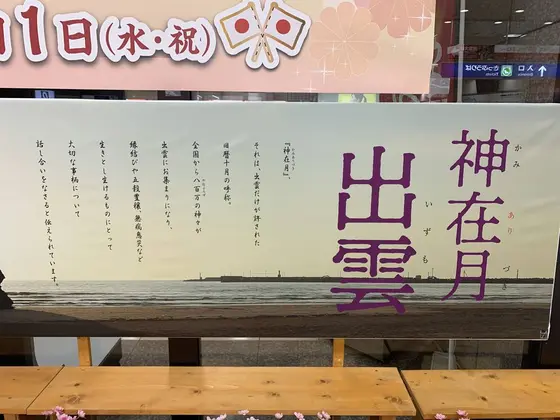 1日(水・祝)
神在月
かみ あり づき
出雲
いずも
『神在月』。
それは、出雲だけが許された
旧暦十月の呼称。
全国から八百万の神々が
出雲にお集まりになり、
縁結びや五穀豊穣、無病息災など
生きとし生けるものにとって
大切な事柄について
話し合いをなさると伝えられています。
入口